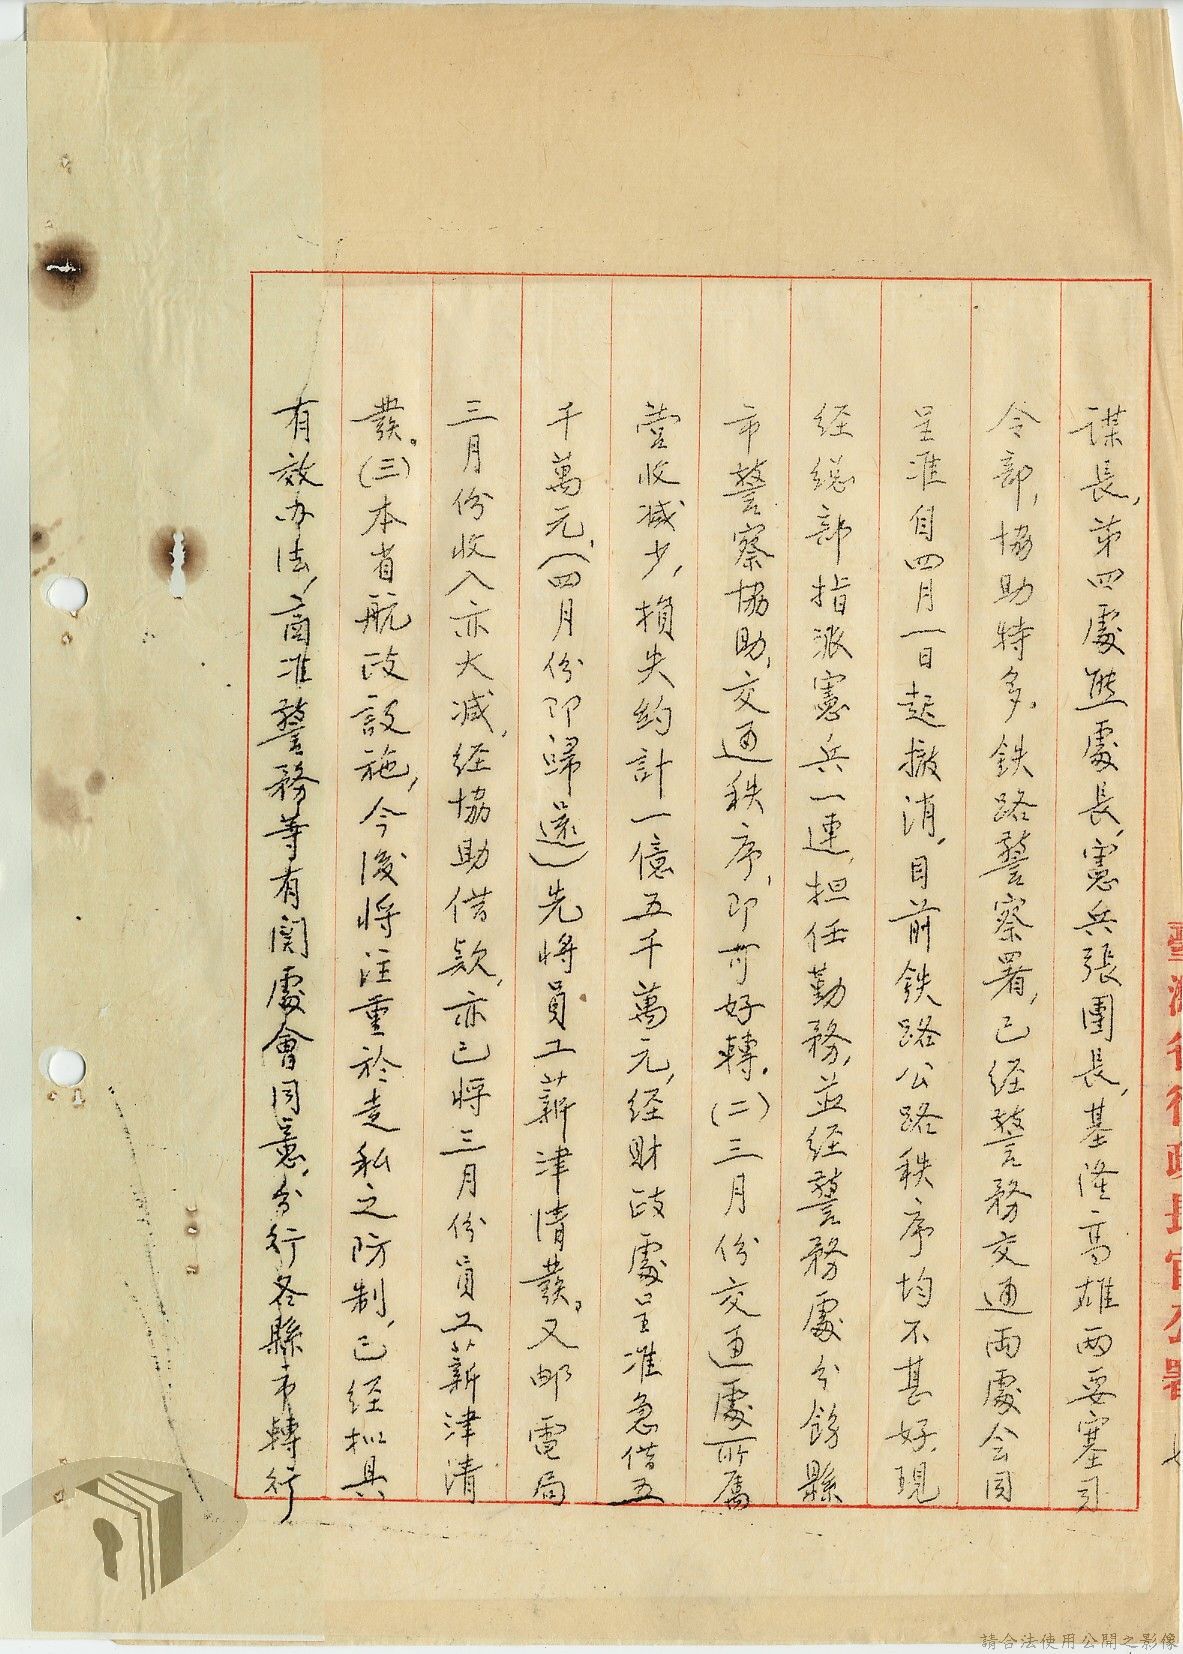 謀長，第四處熊處長，憲兵張團長，基隆高雄兩要塞司
令部，協助特多。鉄路警察署，已経警務交通兩處会同
呈准自四月一日起撤消，目前鉄路公路秩序均不甚好，現
経総部指派憲兵一連，担任勤務，並経警務處分飭縣
市警察協助，交通秩序，即可好轉。(二)三月份交通處所屬
營收減少，損失約計一億五千萬元，経財政處呈准急借五
千萬元，(四月份即歸還)先將員工薪津清發。又邮電局
三月份收入亦大减，経協助借款，亦已將三月份員工薪津清
發。(三)本省航政設施，今後將注重於走私之防制，已経擬具
有效办法，商准警務等有関處會同意，分行各縣市轉行
臺灣省行政長官公署
請合法使用公開之影像